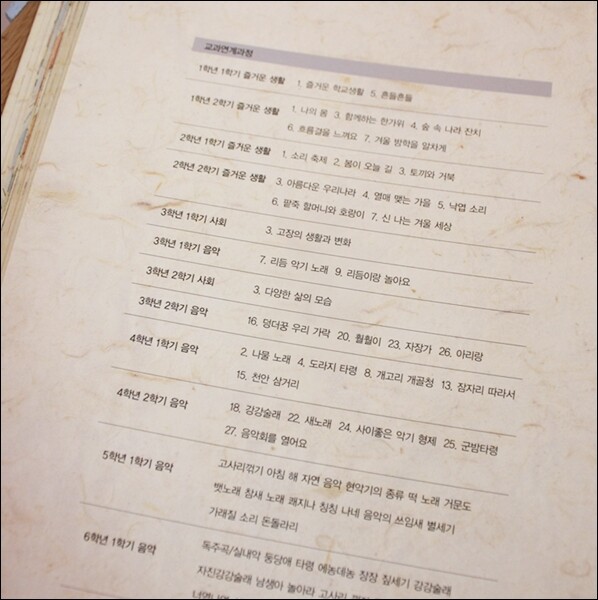 교과연계과정
1학년 1학기 즐거운 생활 1. 즐거운 학교생활 5. 흔들흔들
1학년 2학기 즐거운 생활 1. 나의 몸 3. 함께하는 한가위 4. 숲 속 나라 잔치
6. 흐름결을 느껴요 7. 겨울 방학을 알차게
2학년 1학기 즐거운 생활 1. 소리 축제 2. 봄이 오늘 길 3. 토끼와 거북
2학년 2학기 즐거운 생활 3. 아름다운 우리나라 4. 열매 맺는 가을 5. 낙엽 소리
6. 팥죽 할머니와 호랑이 7. 신 나는 겨울 세상
3학년 1학기 사회 3. 고장의 생활과 변화
3학년 1학기 음악 7. 리듬 악기 노래 9. 리듬이랑 놀아요
3학년 2학기 사회 3. 다양한 삶의 모습
3학년 2학기 음악 16. 덩더꿍 우리 가락 20. 훨훨이 23. 자장가 26. 아리랑
4학년 1학기 음악 2. 나물 노래 4. 도라지 타령 8. 개고리 개골청 13. 잠자리 따라서
15. 천안 삼거리
4학년 2학기 음악 18. 강강술래 22. 새노래 24. 사이좋은 악기 형제 25. 군밤타령
27. 음악회를 열어요
5학년 1학기 음악 고사리꺾기 아침 해 자연 음악 현악기의 종류 떡 노래 거문도
뱃노래 참새 노래 쾌지나 칭칭 나네 음악의 쓰임새 별세기
가래질 소리 돈돌라리
6학년 1학기 음악 독주곡/실내악 둥당애 타령 에농데농 징징 짐세기 강강술래
자진강강술래 남생아 놀아라 고사리